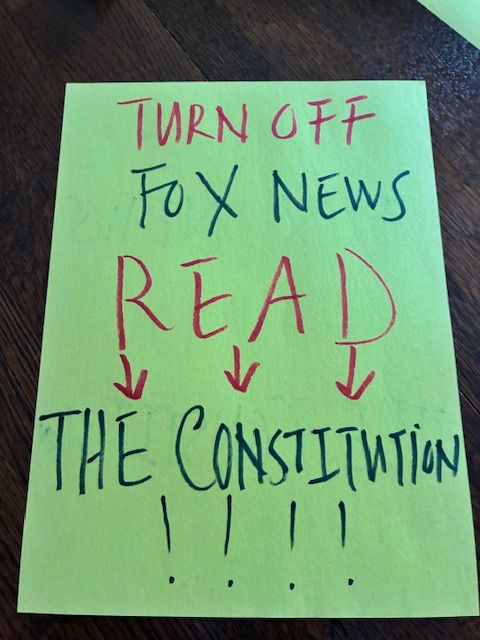 TURN OFF
FOX NEWS
READ
THE CONSTITUTION
! ! ! !